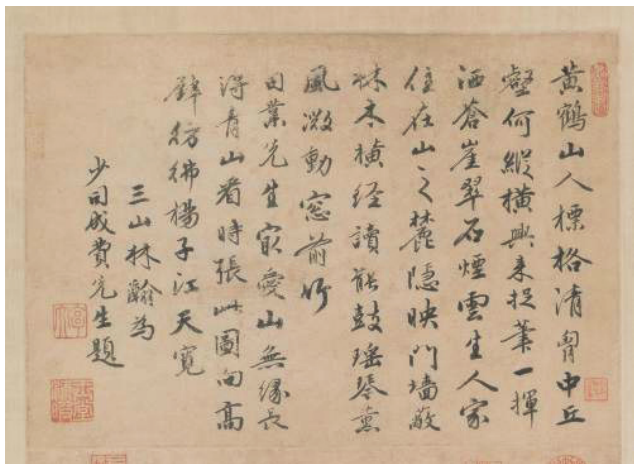 黃鶴山人標格清胷中丘
壑何縱横興来捉筆一揮
洒蒼崖翠石煙雲生人家
住在山之麓隐映門墻敞
林木横经讀能鼓瑶琴熏
風微動窓前竹
日業先生寂愛山無缘长
得青山看時張此圖向髙
鋅彷彿楊子江天寛
三山林瀚为
少司成费先生題